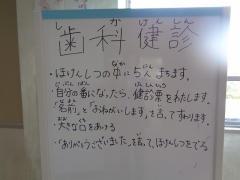 しかけんしん
歯科健診
・ほけんしつの中に5人まちます。
・自分の番になったら、健診票をわたします。
・「名前」と「おねがいします」を言って、すわります。
・大きな口をあける
・「ありがとうございました」を言って、ほけんしつをでる